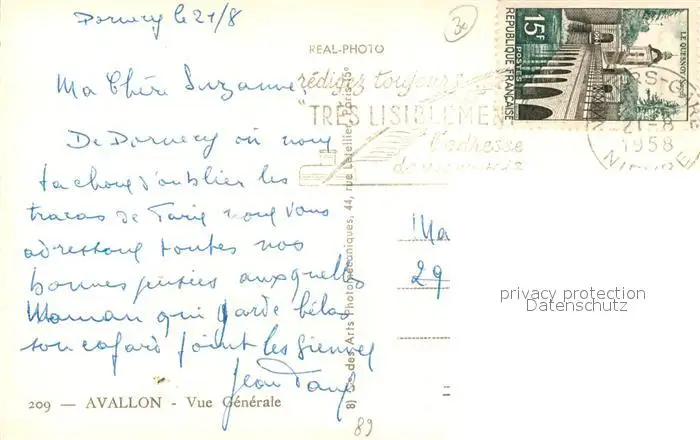 Dornecy le 21/8
3€
REAL-PHOTO
Ma Chère Suzanne,
rédigez toujours
"TRÈS LISIBLEMENT
l'adresse
15F
POSTES
RÉPUBLIQUE FRANÇAISE
LE QUESNOY
21-8
1958
NIÈVRE
De Dornecy où nous
tachons d'oublier les
tracas de Paris nous vous
adressons toutes nos
bonnes pensées auxquelles
Maman qui garde hélas
son cafard joint les siennes
Jean Paul
Ma
29
privacy protection
Datenschutz
des Arts Photomécaniques, 44, rue Letellier, Paris-15e
209 — AVALLON - Vue Générale
89